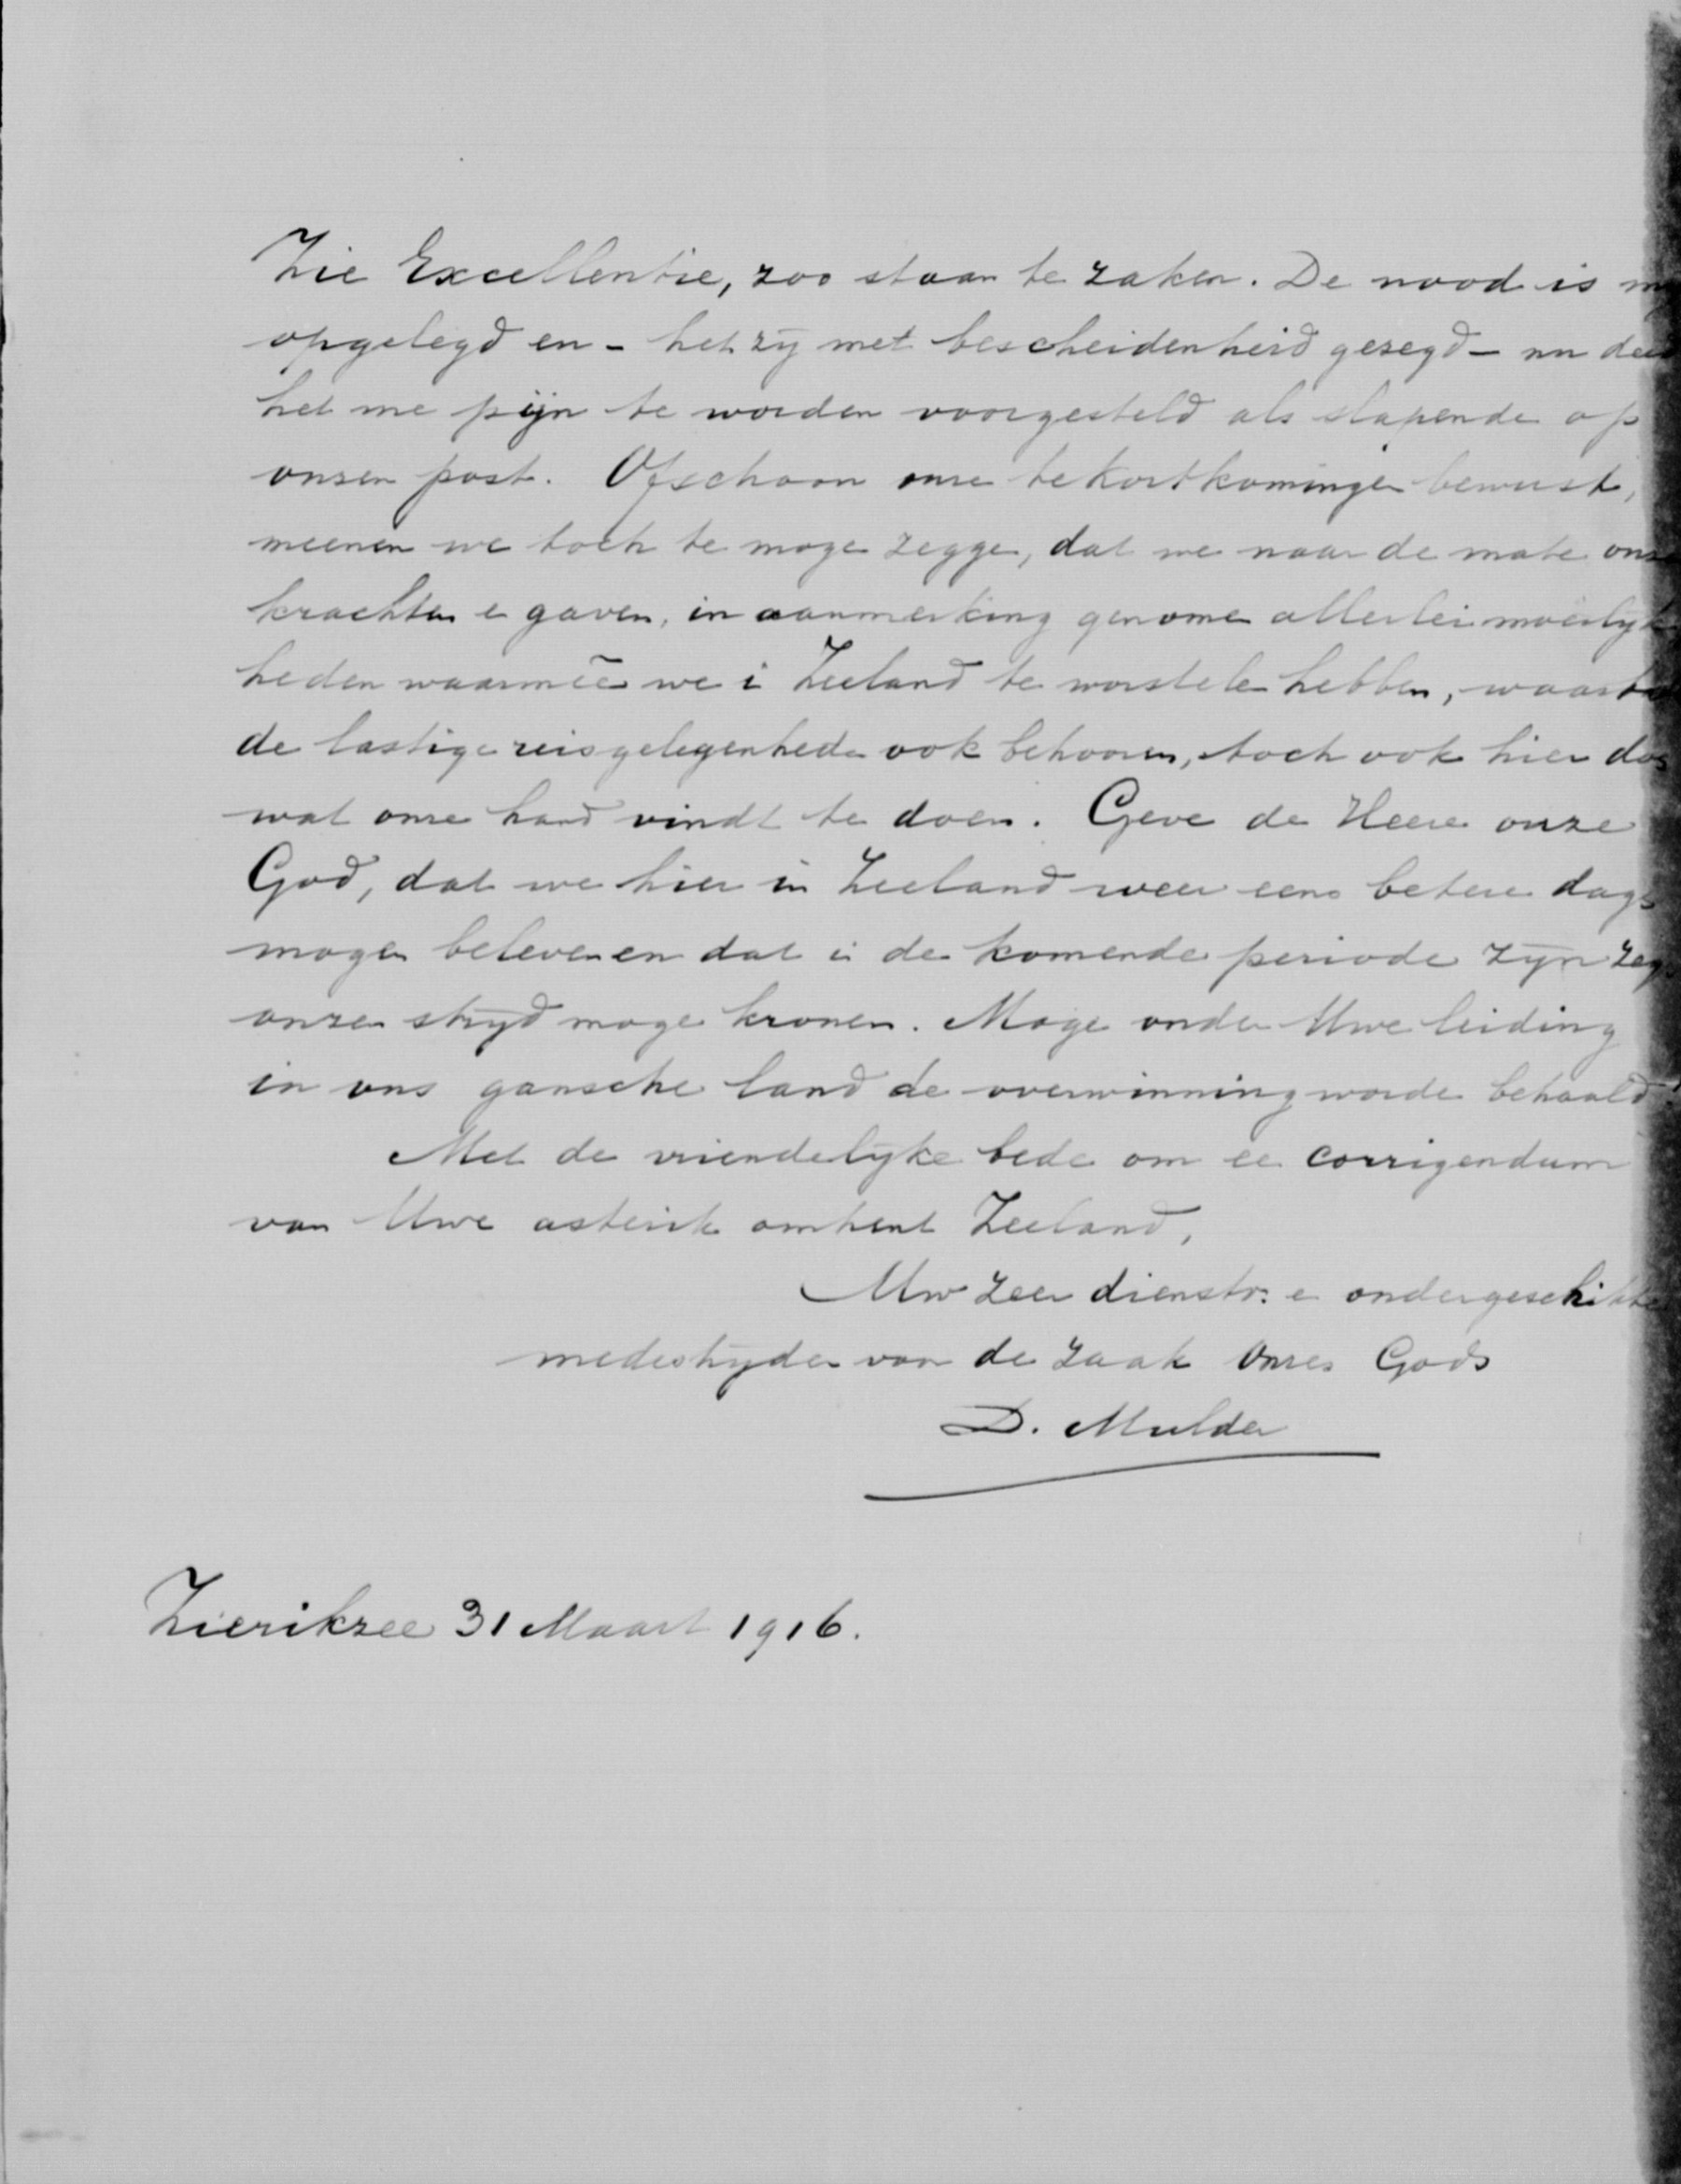 Zie Excellentie, zoo staan te zaken. De nood is
opgelegd en - het zij met bescheidenheid gezegd - nu
het me pijn te worden voorgesteld als slapende op
onzen post. Ofschoon onze tekortkomingen bewust,
meenen we toch te mogen zeggen, dat we naar de mate
krachten en gaven, in aanmerking genomen allerlei moeilijk
heden waarmeê we in Zeeland te worstelen hebben,
de lastige reisgelegenheden ook behooren, toch ook hier
wat onze hand vindt te doen. Geve de Heere onze
God, dat we hier in Zeeland weer eens betere
mogen beleven en dat in de komende periode Zijn
onzen strijd moge kronen. Moge onder Uwe leiding
in ons gansche land de overwinning worde behaald.
Met de vriendelijke bede om een corrigendum
van Uwe asterisk omtrent Zeeland,
Uw zeer dienstv: en ondergeschikte
medestrijder voor de zaak Onzes Gods
D. Mulder
Zierikzee 31 Maart 1916.